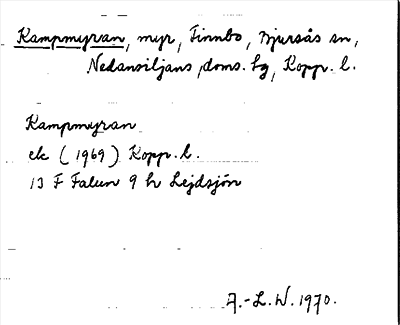 Kampmyran, myr, Finnbo, Bjursås sn,
Nedansiljans doms. hg, Kopp. l.
Kampmyran
ek (1969) Kopp. l.
13 F Falun 9 h Lejdsjön
A.-L. W. 1970.